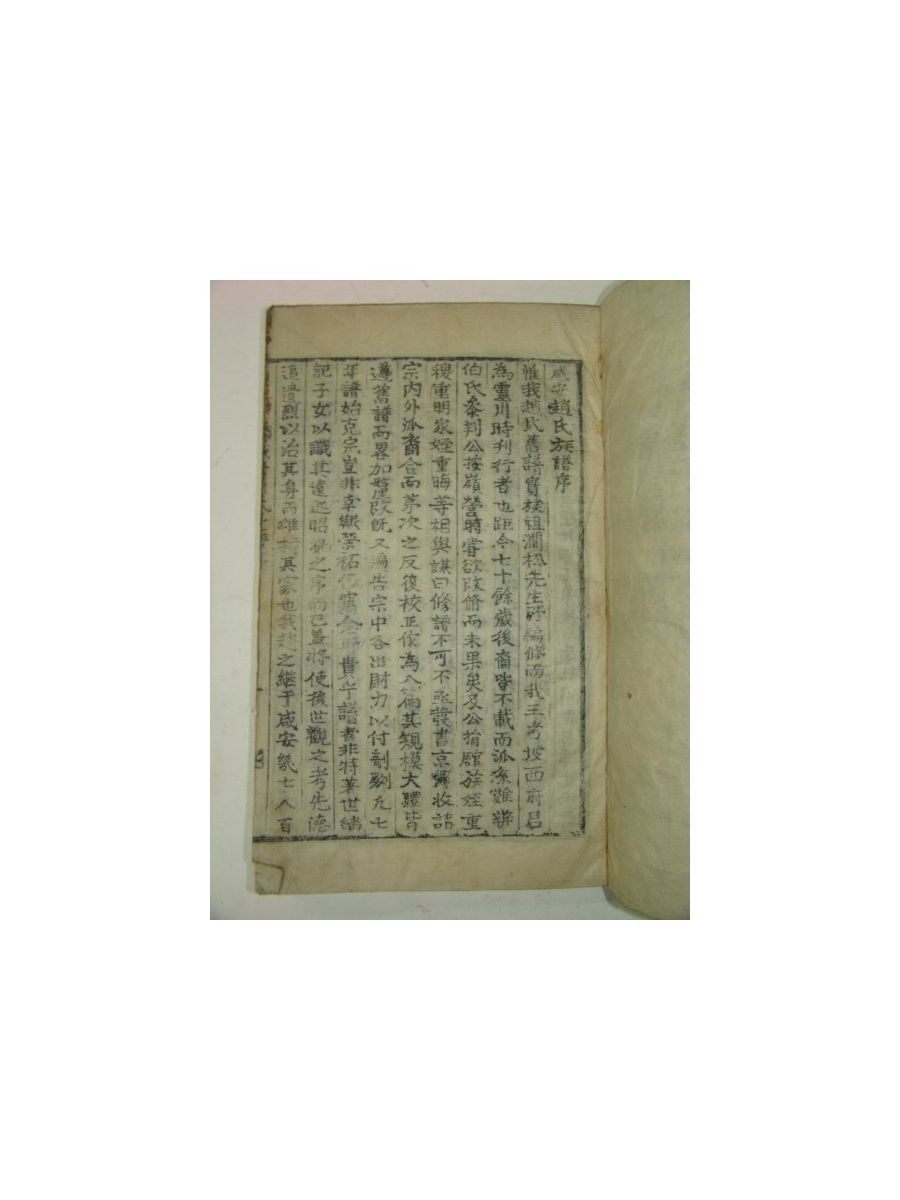 咸安趙氏族譜序
惟我趙氏舊譜實族祖澗松先生所編修而我王考坡西府君
為靈川時刊行者也距今七十餘歲後裔皆不載而派系難辨
伯氏叅判公按嶺營時嘗欲改修而未果矣及公捐館族姪重
稷重明家姪重晦等相與謀曰修譜不可不亟發書京鄉收諸
宗內外派裔合而第次之反復校正作為八篇其規模大體皆
遵舊譜而畧加釐改旣又遍告宗中各出財力以付剞劂凡七
年譜始克完豈非幸歟榮祏仍竊念所貴乎譜者非特著世緒
記子女以識其遠近昭穆之序而已盖將使後世觀之考先德
追遺烈以治其身而維持其家也我趙之継于咸安幾七八百